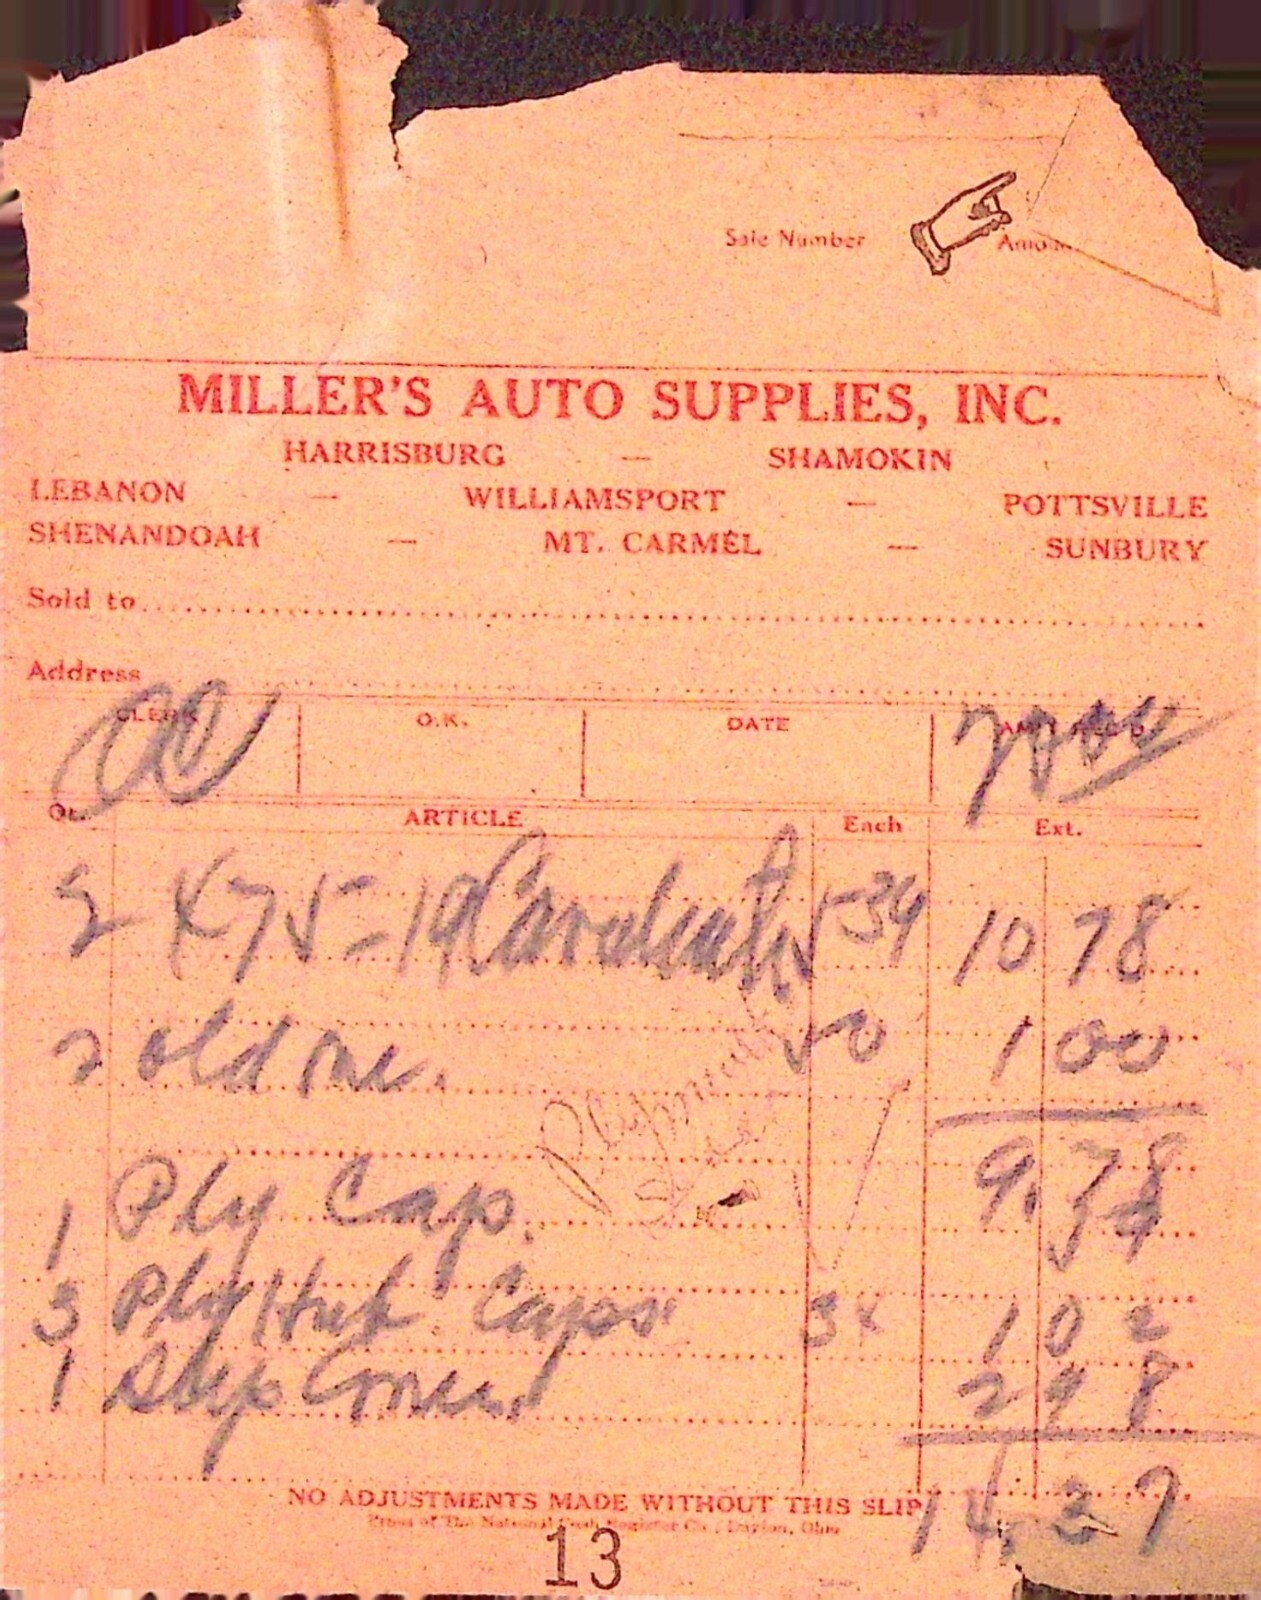 Sale Number Amou
MILLER'S AUTO SUPPLIES, INC.
HARRISBURG — SHAMOKIN
LEBANON — WILLIAMSPORT — POTTSVILLE
SHENANDOAH — MT. CARMEL — SUNBURY
Sold to
Address
CLERK O.K. DATE
ARTICLE Each Ext.
2 475-19 539 10 78
2 old 50 1 00
Plymouth
9.78
1 Ply Cap.
3 Ply Hub Caps 34 1 02
1 Slip Cover 2 98
14.37
NO ADJUSTMENTS MADE WITHOUT THIS SLIP
Press of The National Cash Register Co., Dayton, Ohio
13